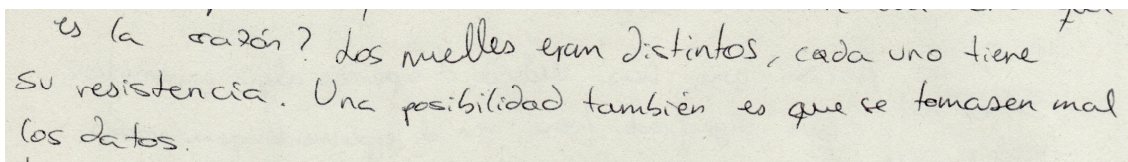 es la razón? Los muelles eran distintos, cada uno tiene
su resistencia. Una posibilidad también es que se tomasen mal
los datos.